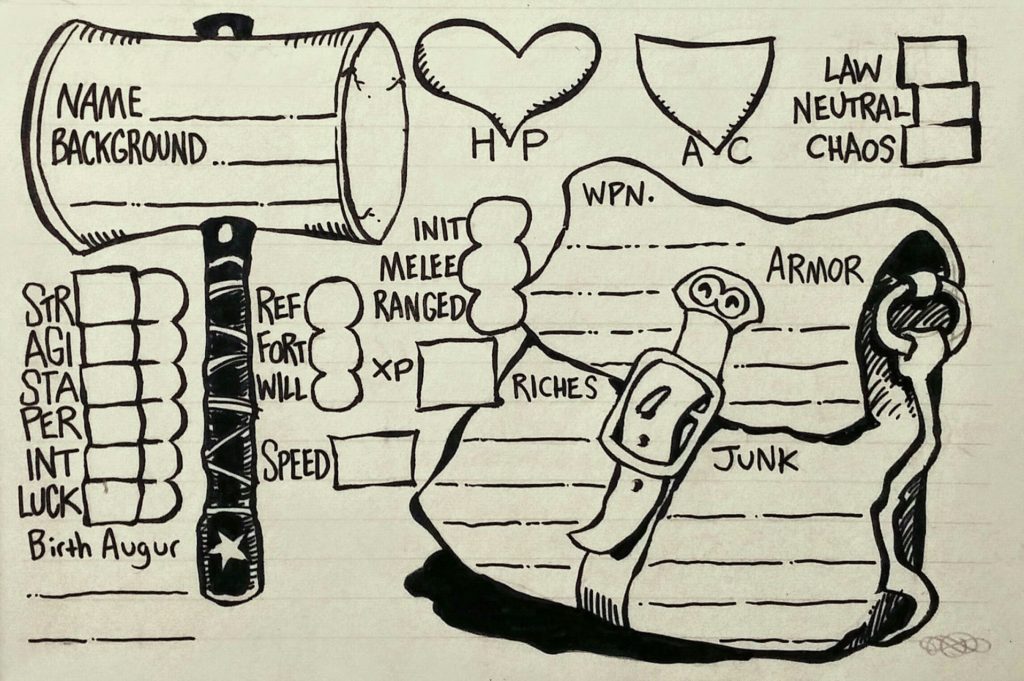 NAME
BACKGROUND
HP
AC
LAW
NEUTRAL
CHAOS
WPN.
ARMOR
INIT
MELEE
RANGED
STR
AGI
STA
PER
INT
LUCK
Birth Augur
REF
FORT
WILL
XP
SPEED
RICHES
JUNK